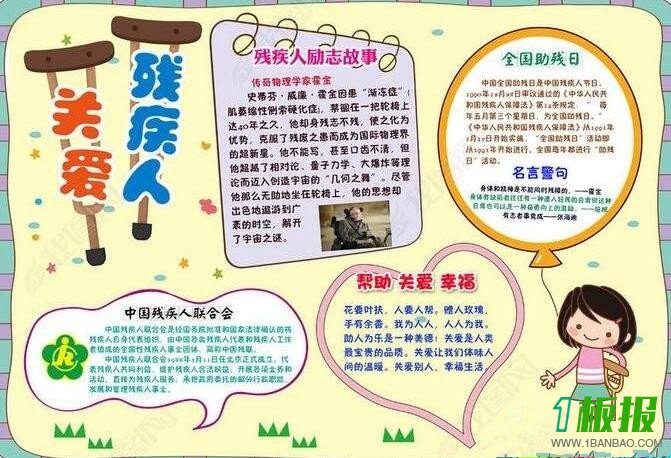 关爱
残疾人
残疾人励志故事
传奇物理学家霍金
史蒂芬·威廉·霍金因患“渐冻症”(
肌萎缩性侧索硬化症),禁锢在一把轮椅上
达40年之久,他却身残志不残,使之化为
优势,克服了残废之患而成为国际物理界
的超新星。他不能写,甚至口齿不清,但
他超越了相对论、量子力学、大爆炸等理
论而迈入创造宇宙的“几何之舞”。尽管
他那么无助地坐在轮椅上,他的思想却
出色地遨游到广
袤的时空,解开
了宇宙之谜。
全国助残日
中国全国助残日是中国残疾人节日。
1990年12月28日审议通过的《中华人民共
和国残疾人保障法》第14条规定:“每
年五月第三个星期日,为全国助残日。”
《中华人民共和国残疾人保障法》从1991年
5月15日开始实施,“全国助残日”活动即
从1991年开始进行。全国每年都进行“助残
日”活动。
名言警句
身体和精神是不能同时残障的。——霍金
有志者事竟成——张海迪
中国残疾人联合会
中国残疾人联合会是经国务院批准和国家法律确认的将
残疾人自身代表组织、由中国各类残疾人代表和残疾人工作
者组成的全国性残疾人事业团体,简称中国残联。
中国残疾人联合会1988年3月11日在北京正式成立。代
表残疾人共同利益,维护残疾人合法权益;开展各项业务和
活动,直接为残疾人服务;承担政府委托的部分行政职能,
发展和管理残疾人事业。
帮助 关爱 幸福
花要叶扶,人要人帮。赠人玫瑰,
手有余香。我为人人,人人为我。
助人为乐是一种美德!关爱是人类
最宝贵的品质。关爱让我们体味人
间的温暖。关爱别人,幸福生活。
1板报
WWW.1BANBAO.COM